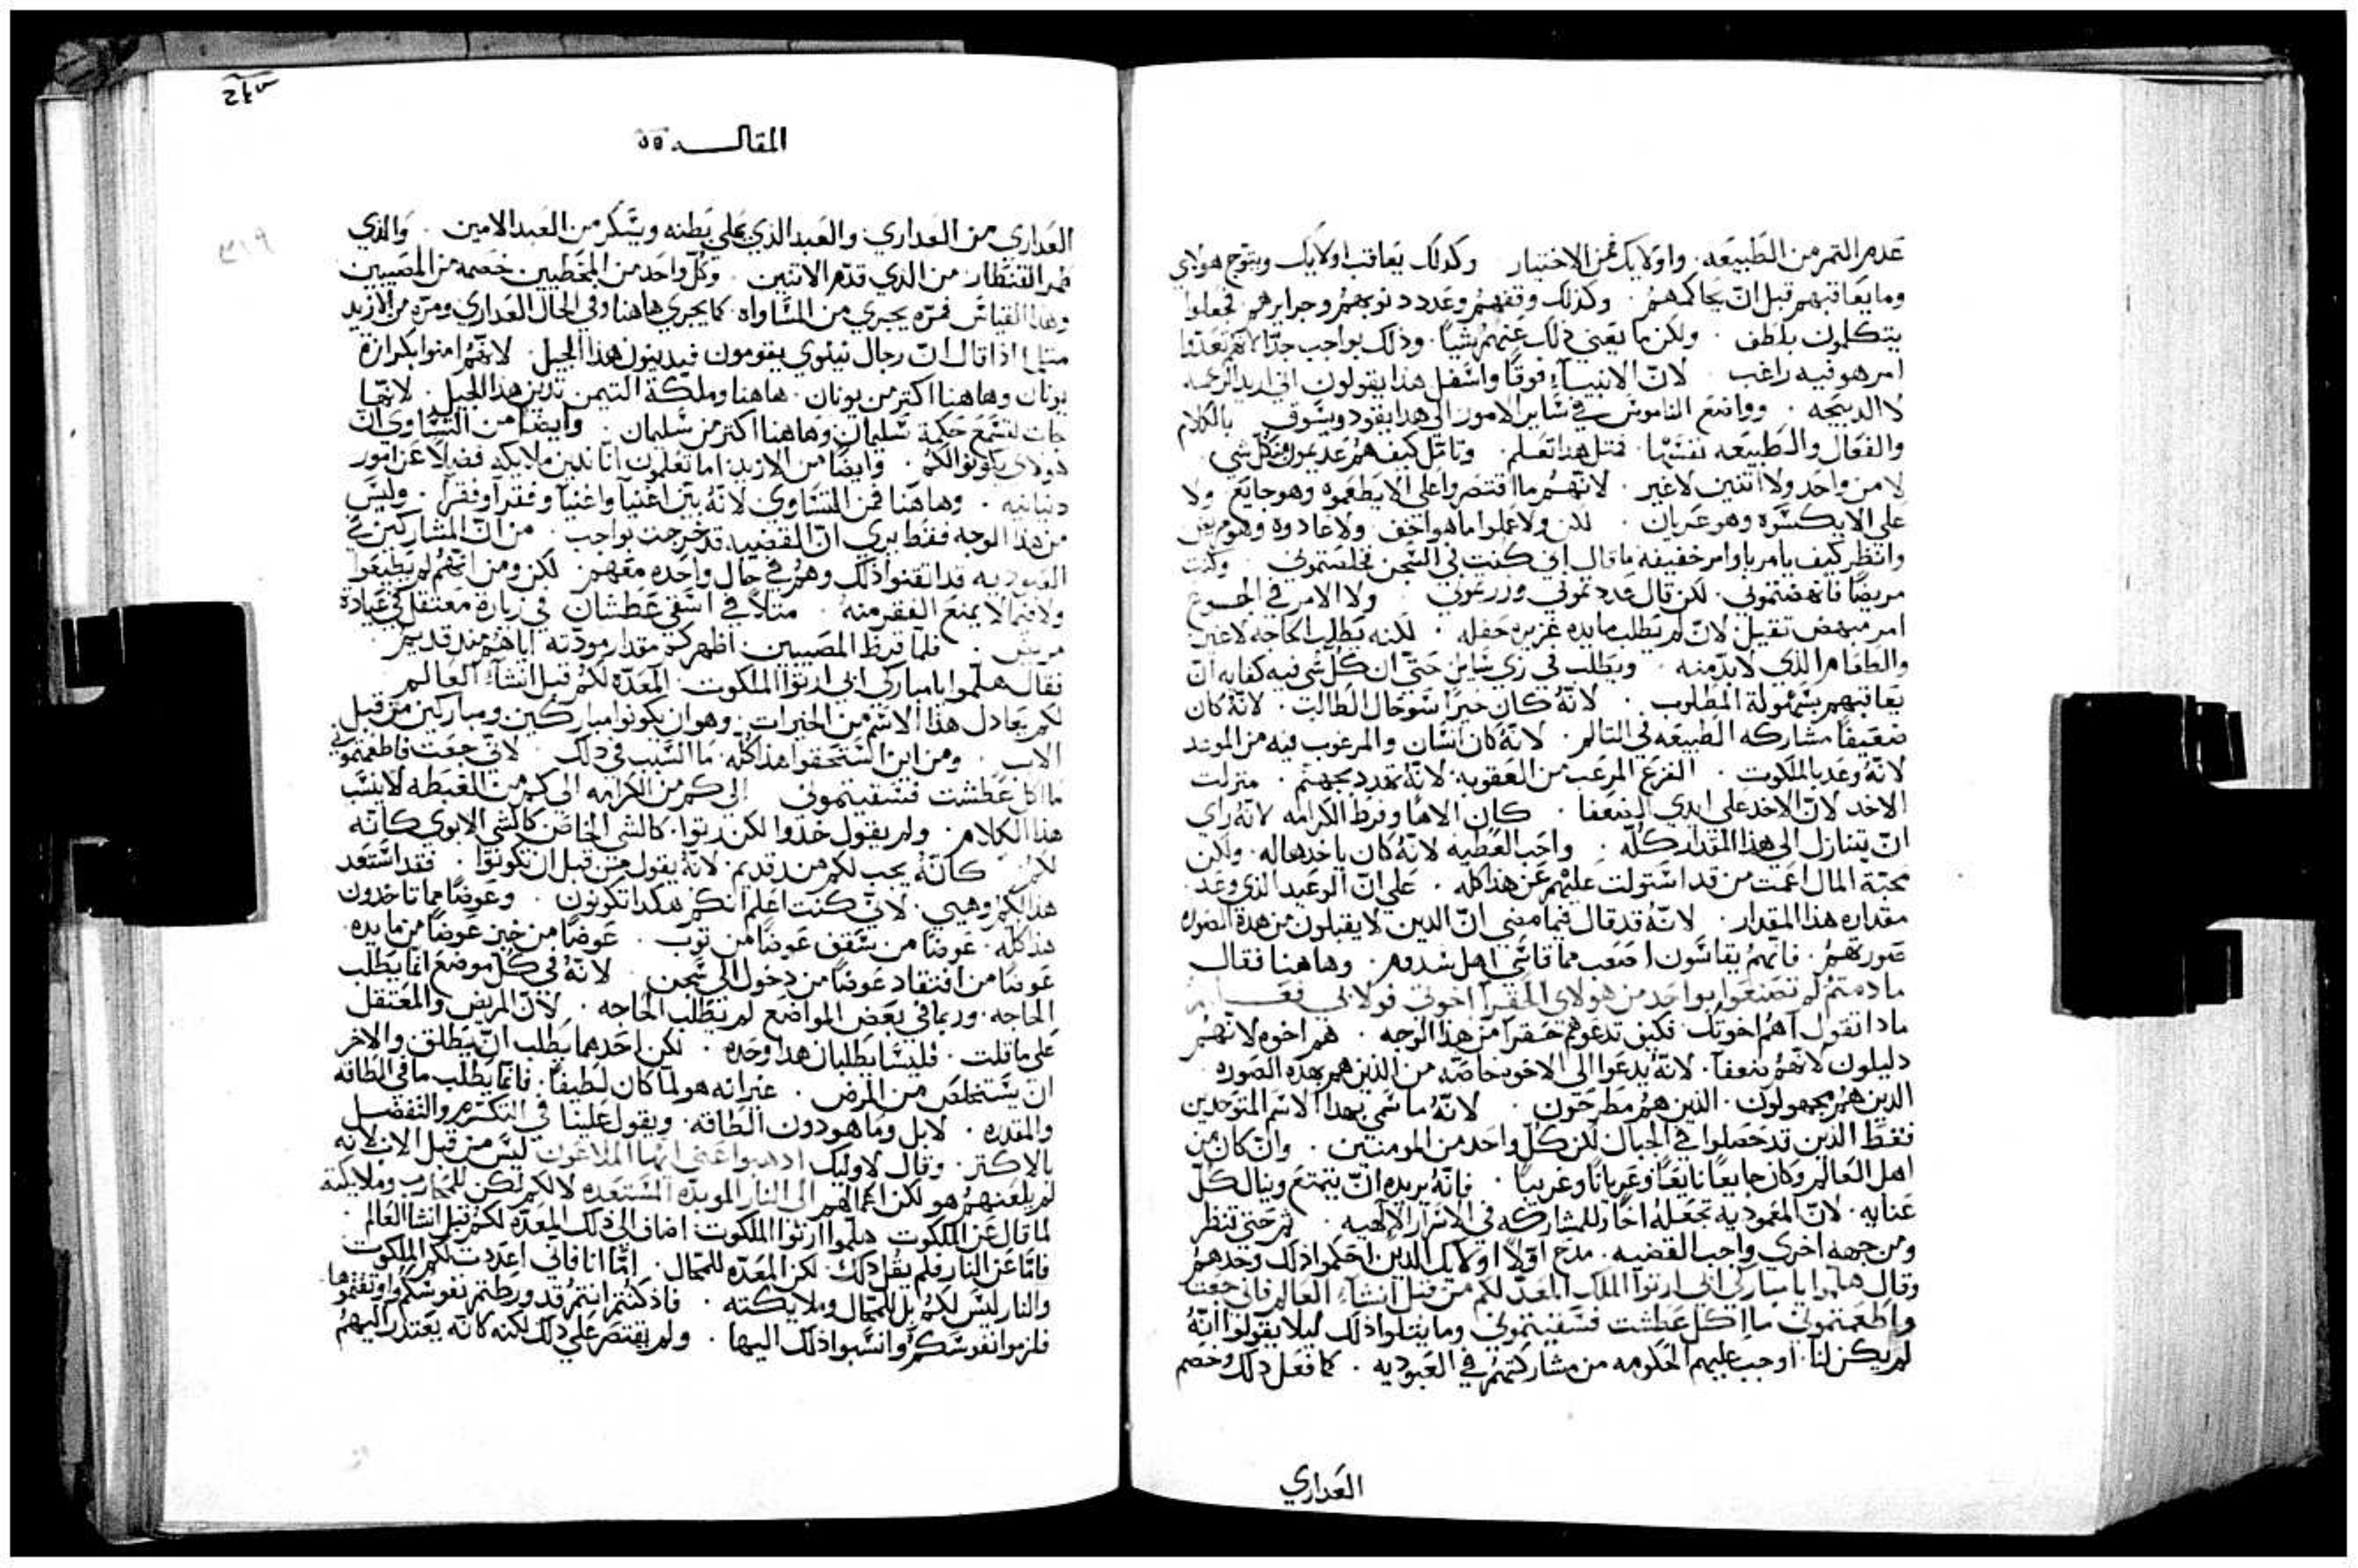 عدم الثمر من الطبيعه. واولايك فمن الاختيار. وكذلك يعاقب اولايك ويتوج هولاي
وما يعاقبهم قبل ان يحاكمهم. وكذلك وقفهم وعدد دنوبهم وجرايرهم. فجعلوا
يتكلمون بلطف. ولكن ما يغني ذلك عنهم شيا. وذلك بواجب جدا لانهم تعدوا
امر هو فيه راغب. لان الانبيا فوقا واسفل هذا يقولون اني اريد الرحمه
لا الدبيحه. وواضع الناموس في ساير الامور الي هدا يقود ويسوق بالكلام
والفعال والطبيعه نفسها. فمثل هدا تعلم. وتامل كيف هم عديمون من كل شي
لا من واحد ولا اتنين لا غير. لانهم ما اقتصروا علي الا يطعموه وهو جايع ولا
علي الا يكسوه وهو عريان. لكن ولا عملوا ما هو اخف ولا عادوه وهو مريض
وانظر كيف يامر باوامر خفيفه ما قال اني كنت في السجن فخلصتموني. وكنت
مريضا فانهضتموني. لكن قال عددتموني وزرتموني. ولا الامر في الجوع
امر مبهض تقيل لان لم يطلب مايده غزيره حفله. لكنه يطلب الحاجه لا غير
والطعام الذي لا بد منه. ويطلب في زي سايل حتي ان كل شي فيه كفايه ان
يعاقبهم بسهولة المطلوب. لانه كان خبزا سو حال الطالب. لانه كان
ضعيفا مشاركه الطبيعه في التالم. لانه كان انسان والمرغوب فيه من الموعد
لانه وعد بالملكوت. الفزع المرعب من العقوبه لانه تهدد بجهنم. منزلت
الاخد لان الاخد علي ايدي الضعفا. كان الاها وفرط الكرامه لانه راي
ان يتنازل الي هذا المقدار كله. واجب العطيه لانه كان ياخد ماله. ولكن
محبة المال اعمت من قد استولت عليهم عن هذا كله. علي ان الوعيد الذي وعد
مقداره هذا المقدار. لانه قد قال فيما مضي ان الدين لا يقبلون من هدة الصوره
صورتهم. فانهم يقاسون اصعب مما قاسي اهل سدوم. وهاهنا فقال
ما دمتم لم تصنعوا بواحد من هولاي الحقرا اخوتي فولا بي فعلتم
مادا تقول اهم اخوتك فكيف تدعوهم حقرا من هذا الوجه. هم اخوه لانهم
دليلون لانهم ضعفا. لانه يدعوا الي الاخوه خاصه من الذين هم بهده الصوره
الدين هم مجهولون. الذين هم مطرحون. لانه ما سمي بهدا الاسم المتوحدين
فقط الذين قد حصلوا في الجبال لكن كل واحد من المومنين. وان كان من
اهل العالم وكان جايعا نايعا وعريانا وغريبا. فانه يريده ان يتمتع وينال كل
عنايه. لان المعموديه تجعله اخا وللمشاركه في الاسرار الالهيه. ثم حتي تنظر
ومن جهه اخري واجب القضيه. مدح اولا اولايك الدين احكموا ذلك وحدهم
وقال هلموا يا مباركي ابي ارتوا الملك المعد لكم من قبل انشاء العالم فاني جعت
واطعمتموني ما اكل عطشت فسقيتموني وما يتلوا ذلك ليلا يقولوا انه
لم يكن لنا. اوجب عليهم الحكومه من مشاركتهم في العبوديه. كما فعل ذلك وخصم
العداري
المقاله ٥٥
العداري من العداري والعبد الذي علي بطنه ويسكر من العبد الامين. والذي
طمر القنطار من الذي قدم الاتنين. وكل واحد من المخطيين خصمه من المصيبين
وهذا القياس فمره يجري من المساواه. كما يجري هاهنا وفي الحال العداري ومره من الازيد
متلما اذا قال ان رجال نينوي يقومون فيدينون هذا الجيل لانهم امنوا بكرازة
يونان وهاهنا اكتر من يونان. هاهنا وملكة التيمن تدين هدا الجيل. لانها
جات لتسمع حكمة سليمان وهاهنا اكتر من سليمان. وايضا من التساوي ان
هولاي يكونوا لكم. وايضا من الازيد اما تعلمون اننا ندين ملايكه فضلا عن امور
دنيانيه. وهاهنا فمن التساوي لانه بين اغنيا واغنيا وفقرا وفقرا. وليس
من هدا الوجه فقط يري ان القضيه قد خرجت بواجب. من ان المشاركين في
العبوديه قد اتقنوا ذلك وهم في حال واحده معهم. لكن ومن انهم لم يطيعوا
ولا فيما لا يمنع الفقر منه. متلا في اسقي عطشان في زيارة معتقل في عيادة
مريض. فلما قرظ المصيبين اظهر كم مقدار مودته اياهم مند قديم
فقال هلموا يا مباركي ابي ارتوا الملكوت المعده لكم قبل انشاء العالم
لكم يعادل هذا الاسم من الخيرات. وهو ان يكونوا مباركين ومباركين من قبل
الاب. ومن اين استحقوا هدا كله. ما السبب في دلك. لاني جعت فاطعمتموني
ما اكل عطشت فسقيتموني الي كم من الكرامه الي كم من الغبطه لا ينسب
هذا الكلام. ولم يقول خدوا لكن رتوا. كالشي الخاص كالشي الابوي كانه
لكم. كانه يجب لكم مند قديم. لانه يقول من قبل ان تكونوا. فقد استعد
هذا لكم وهيي. لاني كنت اعلم انكم هكدا تكونون. وعوضا مما تاخدون
هدا كله. عوضا من سقف عوضا من توب. عوضا من خبز عوضا من مايده
عوضا من افتقاد عوضا من دخول الي سجن. لانه في كل موضع انما يطلب
الحاجه. وربما في بعض المواضع لم يطلب الحاجه. لان المريض والمعتقل
علي ما قلت. فليسا يطلبان هدا وحده. لكن احدهما يطلب ان يطلق والاخر
ان يستخلص من المرض. غير انه هو لما كان لطيفا. فانما يطلب ما في الطاقه
والمقدره. لا بل وما هو دون الطاقه. ويقول علينا في التكرم والتفضل
بالاكتر. وقال لاوليك ادهبوا عني ايها الملاعون ليس من قبل الاب لانه
لم يلعنهم هو لكن اعمالهم الي النار الموبده المستعده لا لكم لكن للمحارب وملايكته
لما قال عن الملكوت هلموا ارتوا الملكوت اضاف الي ذلك المعده لكم قبل انشا العالم
فاما عن النار فلم يقل دلك. لكن المعده للمحال. اما انا فاني اعددت لكم الملكوت
والنار ليس لكم بل للمحال وملايكته. فاذ كنتم انتم قد ورطتم نفوسكم واوقفتموها
فلزموا نفوسكم وانسبوا ذلك اليها. ولم يقتصر علي دلك لكنه كانه يعتذر اليهم